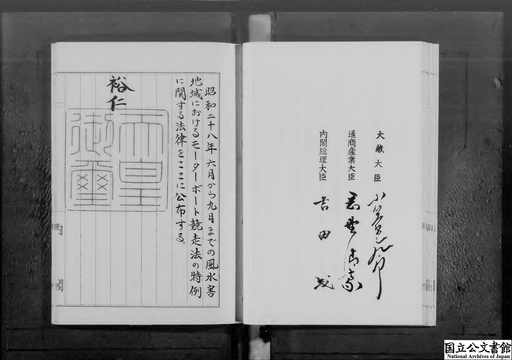 昭和二十八年六月から九月までの風水害
地域におけるモーターボート競走法の特例
に関する法律をここに公布する。
裕仁
天皇
御璽
大蔵大臣
通商産業大臣
内閣総理大臣 吉田茂
国立公文書館
National Archives of Japan